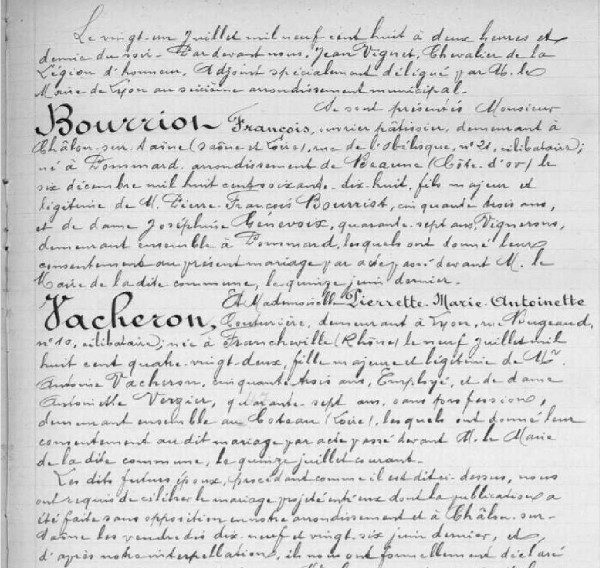 Le vingt-un Juillet mil neuf cent huit à deux heures et
demie du soir. Par devant nous, Jean Vignet, Chevalier de la
Légion d'honneur, Adjoint spécialement délégué par M. le
Maire de Lyon au sixième arrondissement municipal.
Se sont présentés Monsieur
Bourriot François, ouvrier pâtissier, demeurant à
Châlon-sur-Saône (Saône et Loire), rue de l'Obélisque, n° 21, célibataire;
né à Pommard arrondissement de Beaune (Côte-d'or) le
six décembre mil huit cent soixante-dix-huit, fils majeur et
légitime de M. Pierre-François Bourriot, cinquante trois ans,
et de dame Joséphine Génevoix, quarante-sept ans, Vignerons,
demeurant ensemble à Pommard, lesquels ont donné leur
consentement au présent mariage par acte passé devant M. le
Maire de la dite commune, le quinze juin dernier.
Et Mademoiselle Pierrette-Marie-Antoinette
Vacheron, Couturière, demeurant à Lyon, rue Bugeaud,
n° 10, célibataire; née à Francheville (Rhône) le neuf juillet mil
huit cent quatre-vingt-deux, fille majeure et légitime de Mr.
Antoine Vacheron, cinquante trois ans, Employé, et de dame
Antoinette Vergier, quarante-sept ans, sans profession,
demeurant ensemble au Coteau (Loire), lesquels ont donné leur
consentement au dit mariage par acte passé devant M. le Maire
de la dite commune, le quinze juillet courant.
Les dits futurs époux, procédant comme il est dit ci-dessus, nous
ont requis de célébrer le mariage projeté entr'eux dont la publication a
été faite sans opposition en notre arrondissement et à Châlon-sur-
Saône les vendredis dix-neuf et vingt-six juin dernier, et
d'après notre interpellation, ils nous ont formellement déclaré